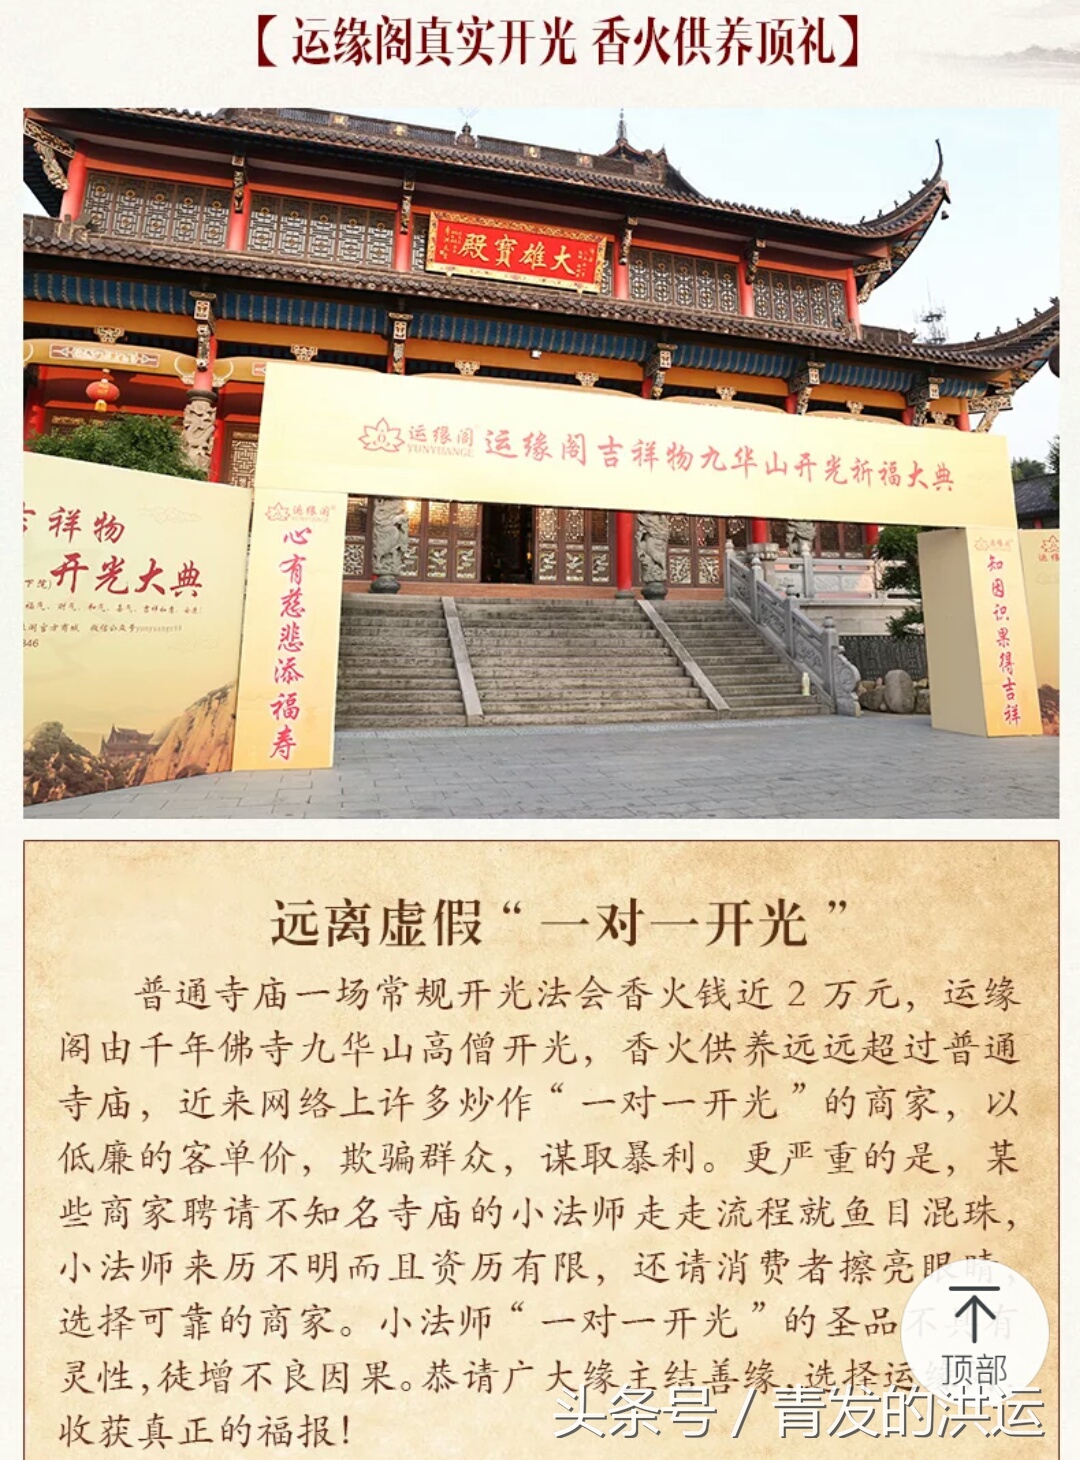 【运缘阁真实开光 香火供养顶礼】
殿寳雄大
运缘阁
YUNYUANGE
运缘阁吉祥物九华山开光祈福大典
祥物
开光大典
运缘阁
心有慈悲添福寿
知因识果得吉祥
远离虚假“一对一开光”
普通寺庙一场常规开光法会香火钱近2万元，运缘
阁由千年佛寺九华山高僧开光，香火供养远远超过普通
寺庙，近来网络上许多炒作“一对一开光”的商家，以
低廉的客单价，欺骗群众，谋取暴利。更严重的是，某
些商家聘请不知名寺庙的小法师走走流程就鱼目混珠，
小法师来历不明而且资历有限，还请消费者擦亮眼睛，
选择可靠的商家。小法师“一对一开光”的圣品不具有
灵性,徒增不良因果。恭请广大缘主结善缘,选择运
收获真正的福报!
顶部
头条号 / 青发的洪运